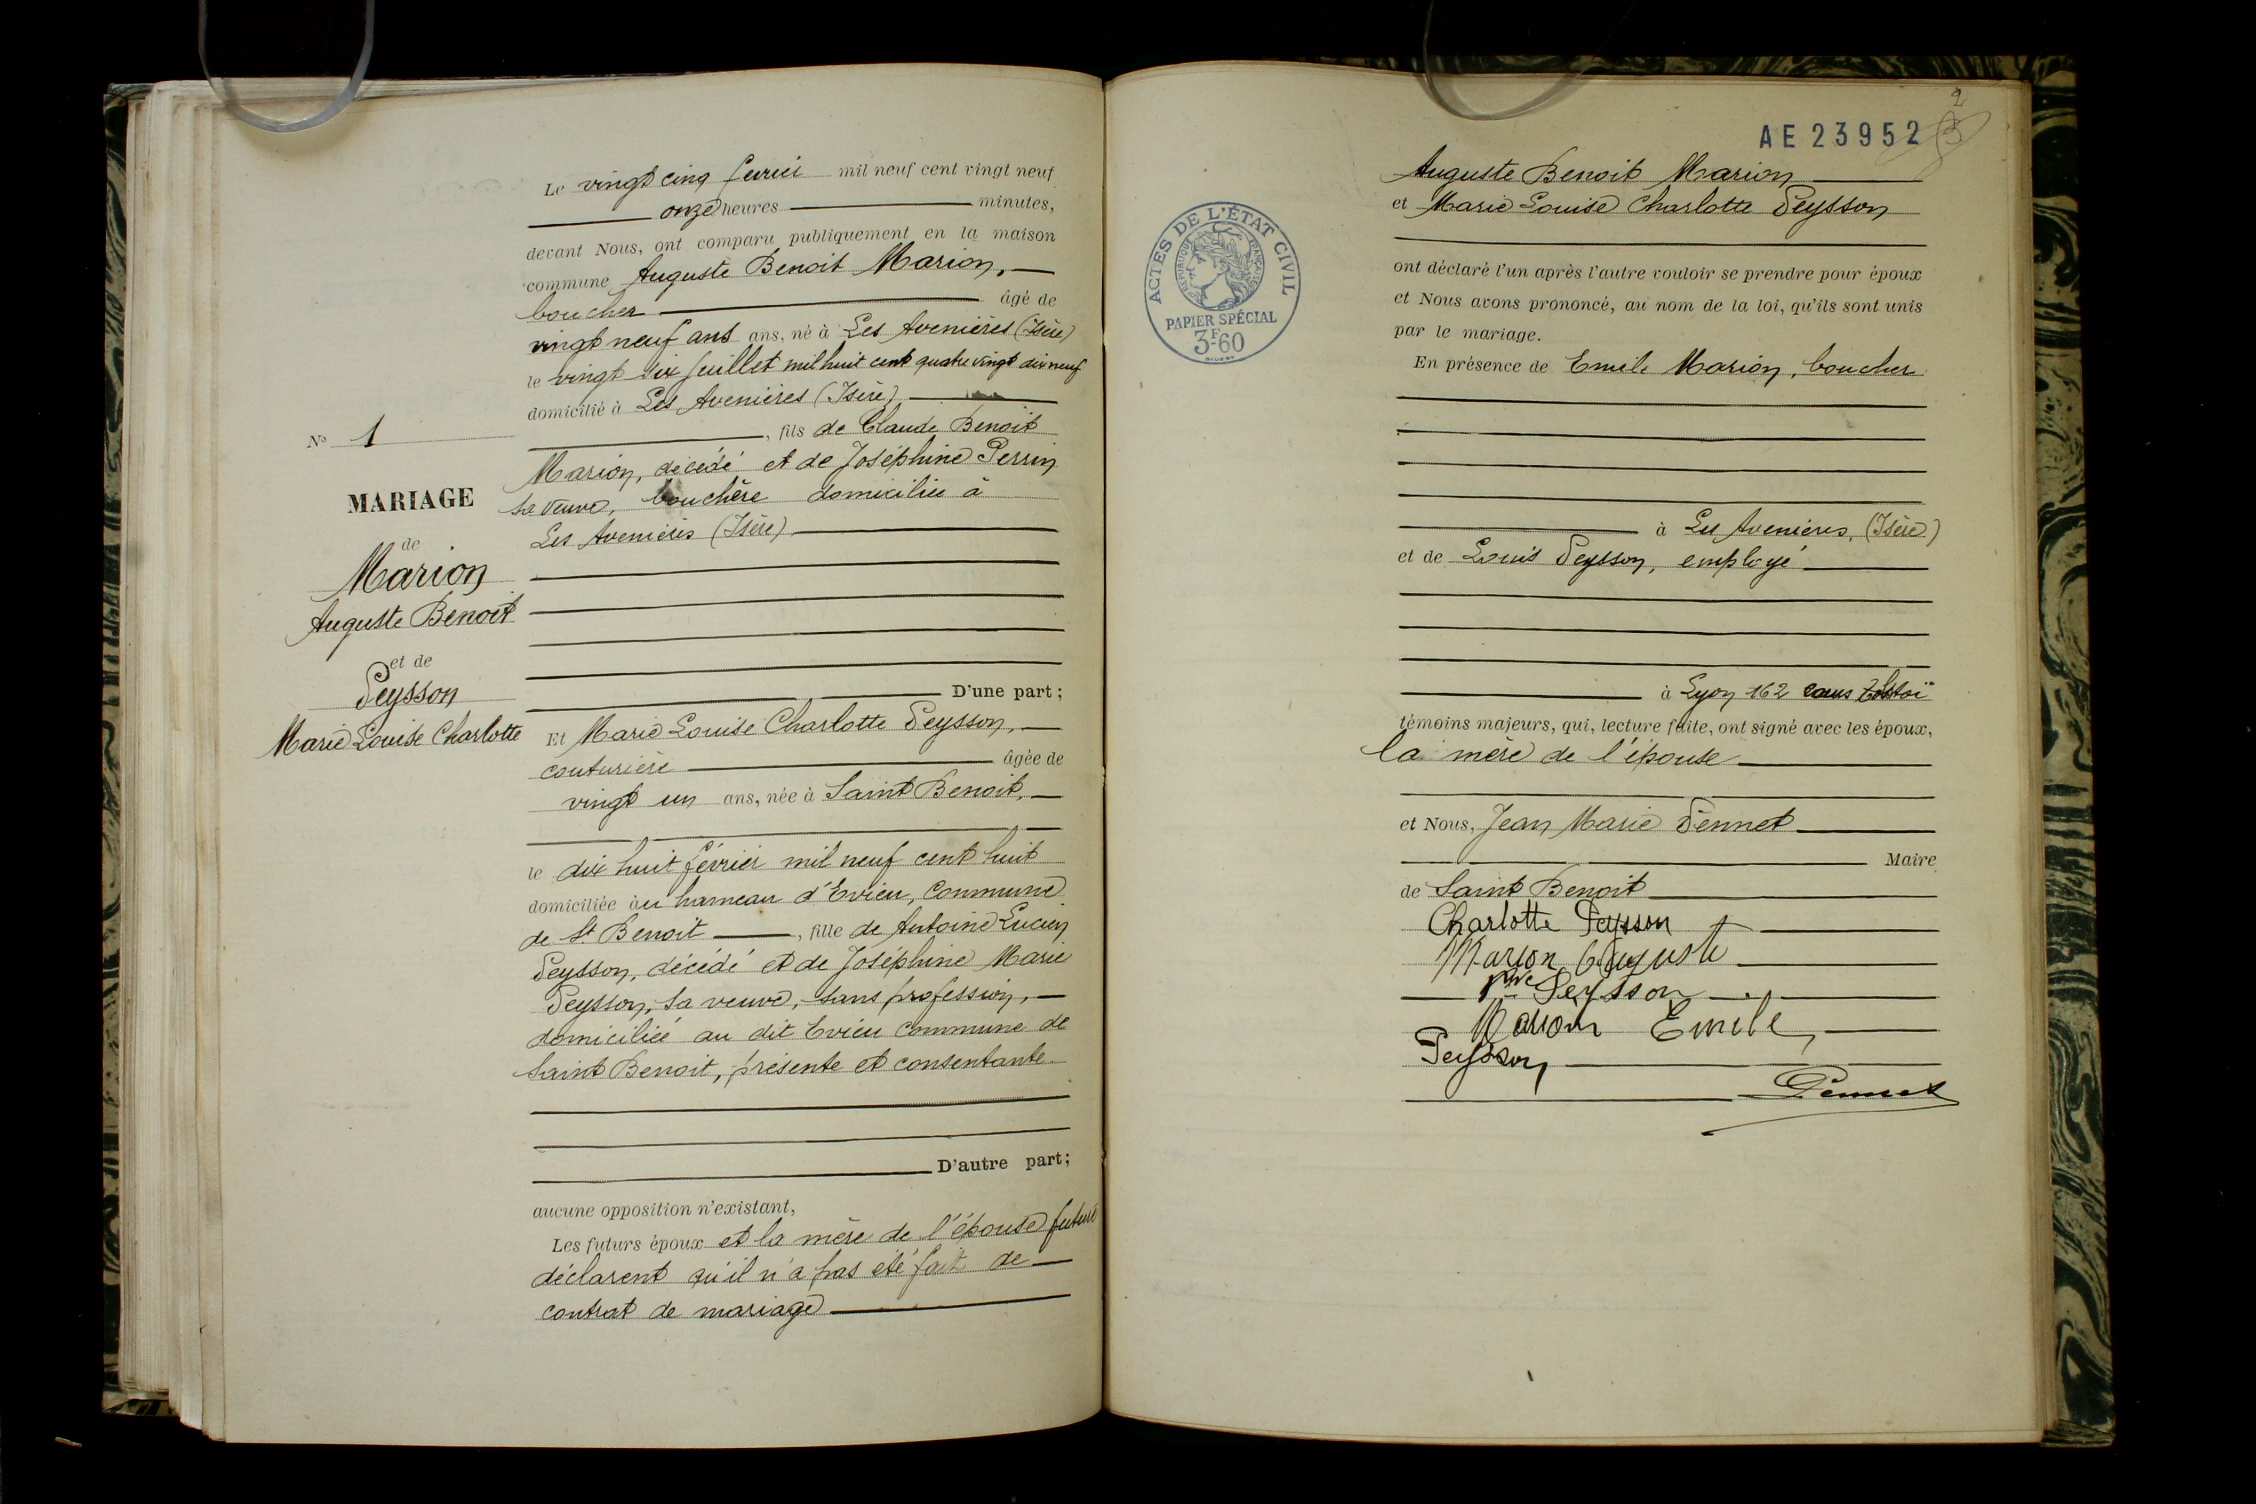 N° 1
MARIAGE
de
Marion
Auguste Benoit
et de
Peysson
Marie Louise Charlotte
Le vingt cinq février mil neuf cent vingt neuf
onze heures minutes,
devant Nous, ont comparu publiquement en la maison
commune Auguste Benoit Marion,
boucher âgé de
vingt neuf ans ans, né à Les Avenières (Isère)
le vingt six juillet mil huit cent quatre vingt dix neuf
domicilié à Les Avenières (Isère)
, fils de Claude Benoit
Marion, décédé et de Joséphine Perrin
sa veuve, bouchère domiciliée à
Les Avenières (Isère)
D'une part ;
Et Marie Louise Charlotte Peysson,
couturière âgée de
vingt un ans, née à Saint Benoit,
le dix huit février mil neuf cent huit
domiciliée au hameau d'Evieu, Commune
de St Benoit , fille de Antoine Lucien
Peysson, décédé et de Joséphine Marie
Peysson, sa veuve, sans profession,
domiciliée au dit Evieu commune de
Saint Benoit, présente et consentante
D'autre part ;
aucune opposition n'existant,
Les futurs époux et la mère de l'épouse future
déclarent qu'il n'a pas été fait de
contrat de mariage
2
AE 23952
ACTES DE L'ÉTAT CIVIL
RÉPUBLIQUE FRANÇAISE
PAPIER SPÉCIAL
3F60
Auguste Benoit Marion
et Marie Louise Charlotte Peysson
ont déclaré l'un après l'autre vouloir se prendre pour époux
et Nous avons prononcé, au nom de la loi, qu'ils sont unis
par le mariage.
En présence de Emile Marion, boucher
à Les Avenières, (Isère)
et de Louis Peysson, employé
à Lyon 162 cours Tolstoï
témoins majeurs, qui, lecture faite, ont signé avec les époux,
la mère de l'épouse
et Nous, Jean Marie Pennet
Maire
de Saint Benoit
Charlotte Peysson
Marion Auguste
Vve Peysson
Marion Emile
Peysson
Pennet